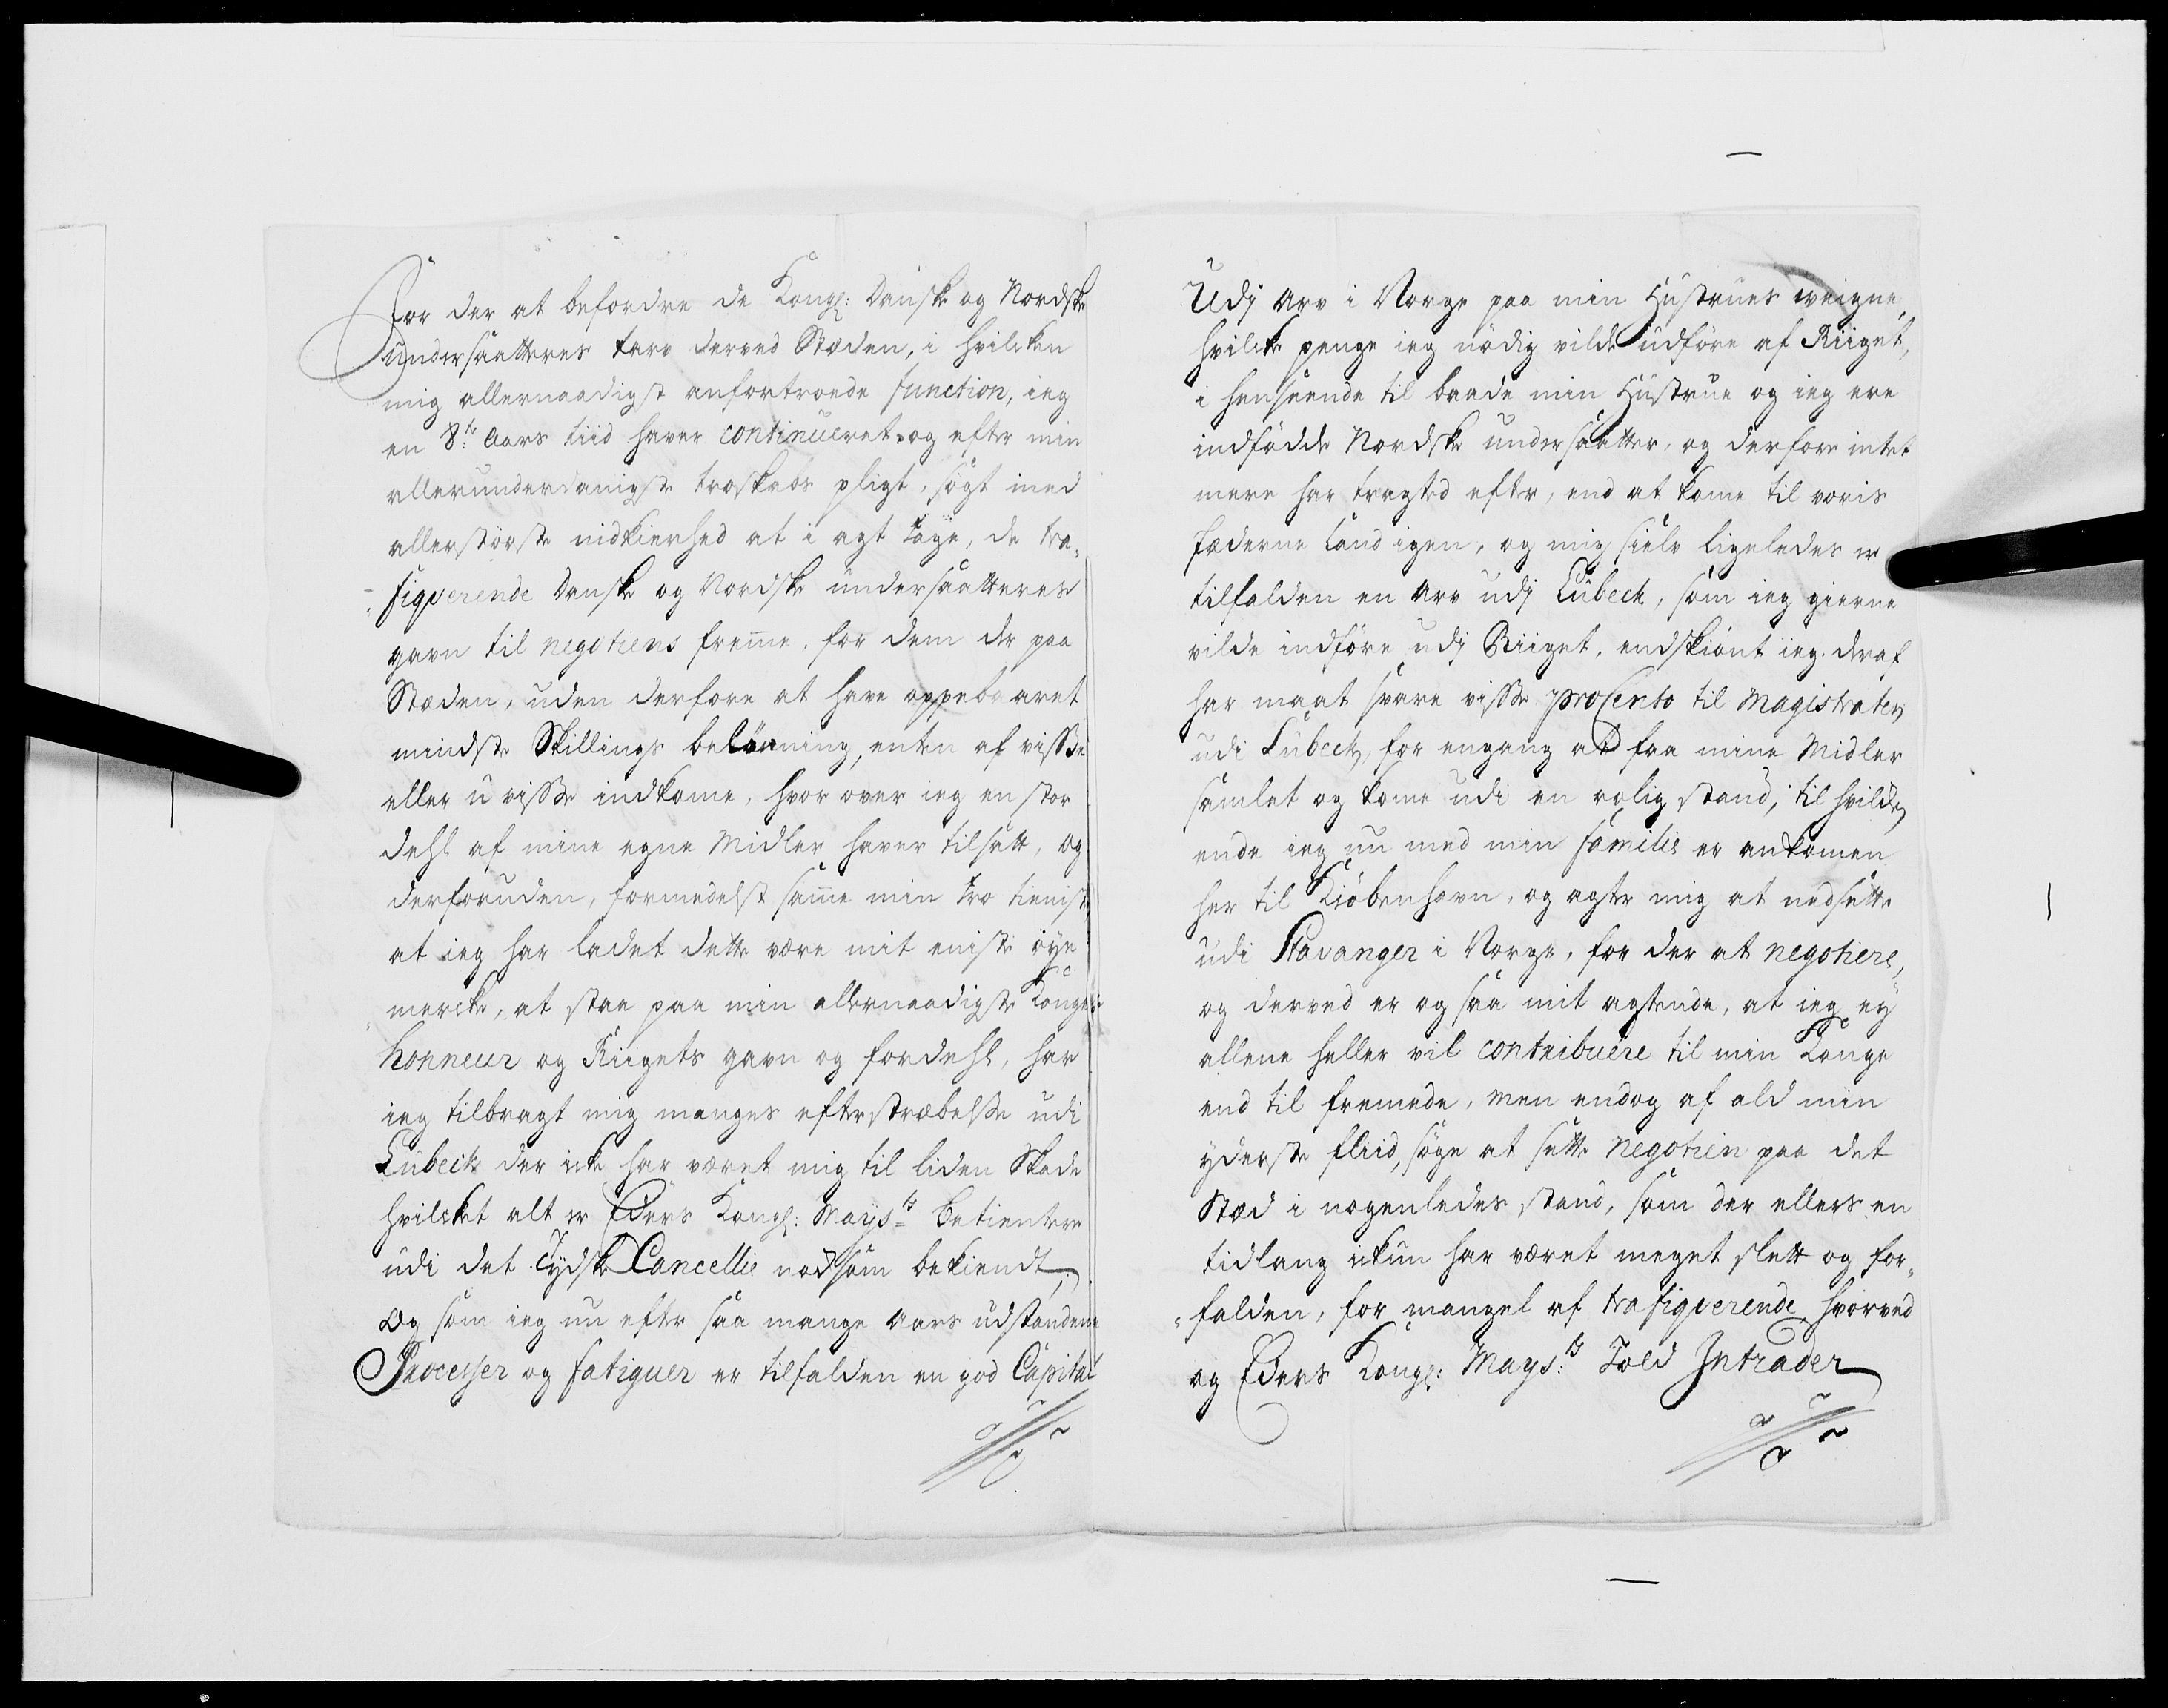 For der at befordre de Kongl: Danske og Nordske
undersaatteres tarv derved Stæden, i hvilcken
mig allernaadigst anfortroede function, ieg
en 8te Aars tiid haver continueret og efter min
allerunderdanigste troskabs pligt, søgt med
allerstørste nidkierhed at i agt tage, de tra-
figverende Danske og Nordske undersaatteres
gavn til negotiens fremme, for dem der paa
Stæden, uden derfore at have oppebaaret
mindste Skillings belønning, enten af visse
eller uvisse indkome, hvor over ieg en stor
dehl af mine egne Midler haver tilsatt, og
derforuden, formedelst samme min tro tieniste
at ieg har ladet dette være mit eniste øye
mercke, at staa paa min allernaadigste Konges
honneur og Riigets gavn og fordehl, har
ieg tilbragt mig manges efterstræbelse udi
Lübeck der icke har været mig til liden Skade
hvilcket alt er Eders Kongl: Mayts Betientere
udi det Tydske Cancellie nodsom bekiendt,
Og som ieg nu efter saa mange Aars udstandene
Processer og fatiguer er tilfalden en god Capital
Udj Arv i Norge paa min Hustrues weigne,
hvilcke penge ieg nødig vilde udføre af Riiget,
i henseende til baade min Hustrue og ieg ere
indfødde Nordske undersaatter, og derfore intet
mere har tragted efter, end at kome til voris
fæderne Land igen, og mig siele ligeledes er
tilfalden en Arv udj Lübeck, som ieg gierne
vilde indføre udj Riiget, endskiønt ieg deraf
har maat svare visse procento til Magistraten
udi Lübeck, for engang at faa mine Midler
samlet og kome udi en rolig stand, til hvilcken
ende ieg nu med min familie er ankomen
her til Kiøbenhavn, og agter mig at nedsette
udi Stavanger i Norge, for der at negotiere,
og derved er og saa mit agtende, at ieg ey
allene heller vil contribuere til min Konge
end til fremede, men endog af ald min
yderste fliid, søge at sette negotien paa det
Stæd i nogenledes stand, som der ellers en
tidlang ickun har været meget slett og for-
falden, for mangel af trafigverende, hvorved
og Eders Kongl: Mays:ts Told Intrader